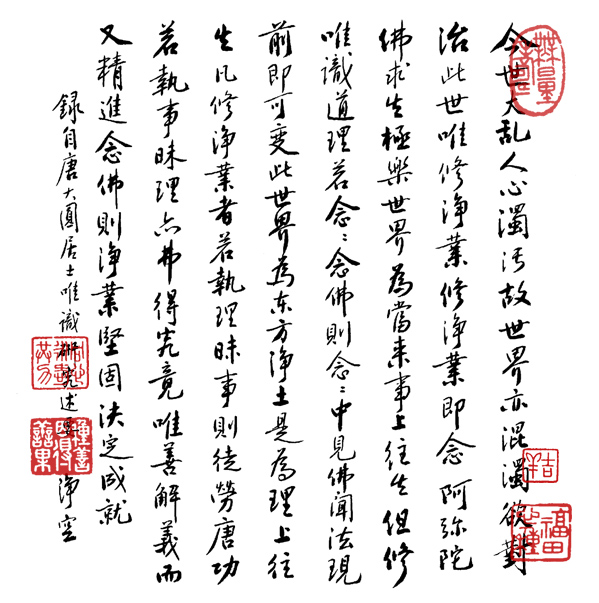 今世大乱人心濁污故世界亦混濁欲對
治此世唯修淨業修淨業即念阿弥陀
佛求生極樂世界為當来事上往生但修
唯識道理若念〻念佛則念〻中見佛聞法現
前即可变此世界為东方淨土是為理上往
生凡修淨業者若執理昧事則徒勞唐功
若執事昧理亦弗得究竟唯善解義而
又精進念佛則淨業堅固决定成就
録自唐大圓居士唯識研究述要 淨空
吉祥
福田
種善因得善果